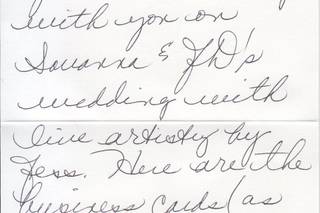 with you on
Savanna & JD's
wedding with
live artistry by
Jess. Here are the
business cards (as